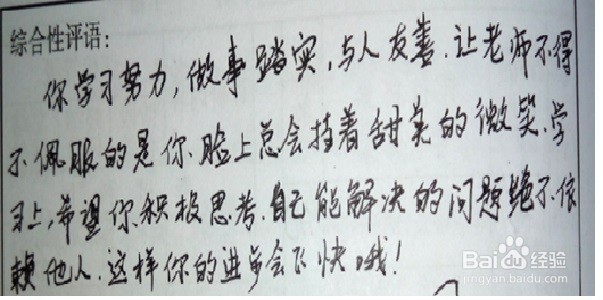 综合性评语:
你学习努力,做事踏实,与人友善.让老师不得
不佩服的是你.脸上总会挂着甜美的微笑.学
习上,希望你积极思考.自己能解决的问题绝不依
赖他人.这样你的进步会飞快哦!
Baidu经验
jingyan.baidu.com